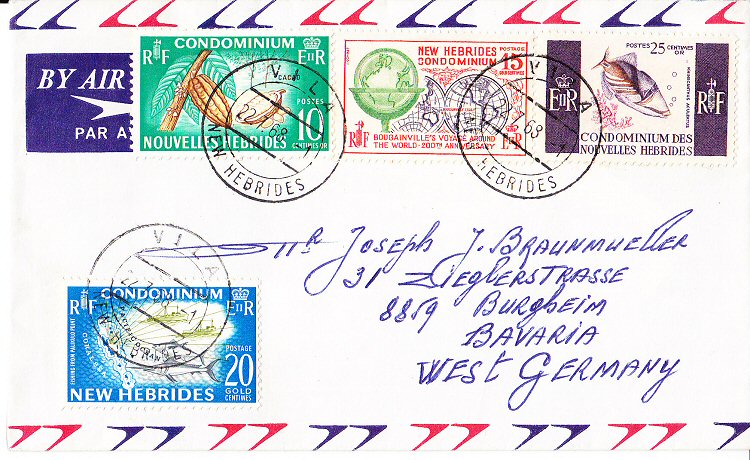 BY AIR
PAR A
CONDOMINIUM
RF EIIR
CACAO
POSTES
10
CENTIMES OR
NOUVELLES HEBRIDES
NEW HEBRIDES
CONDOMINIUM
POSTAGE
15
GOLD CENTIMES
BOUGAINVILLE'S VOYAGE AROUND
THE WORLD-200TH ANNIVERSARY
RF EIIR
POSTES 25 CENTIMES
OR
EIIR RF
CONDOMINIUM DES
NOUVELLES HEBRIDES
VILA
22 68
NEW HEBRIDES
VILA
68
HEBRIDES
Mr JOSEPH J. BRAUNMUELLER
31 ZIEGLERSTRASSE
8859 BURGHEIM
BAVARIA
WEST GERMANY
VILA
22
NEW HEBRIDES
CONDOMINIUM
RF EIIR
FISHING FROM PALIKULO POINT
POSTAGE
20
GOLD
CENTIMES
NEW HEBRIDES